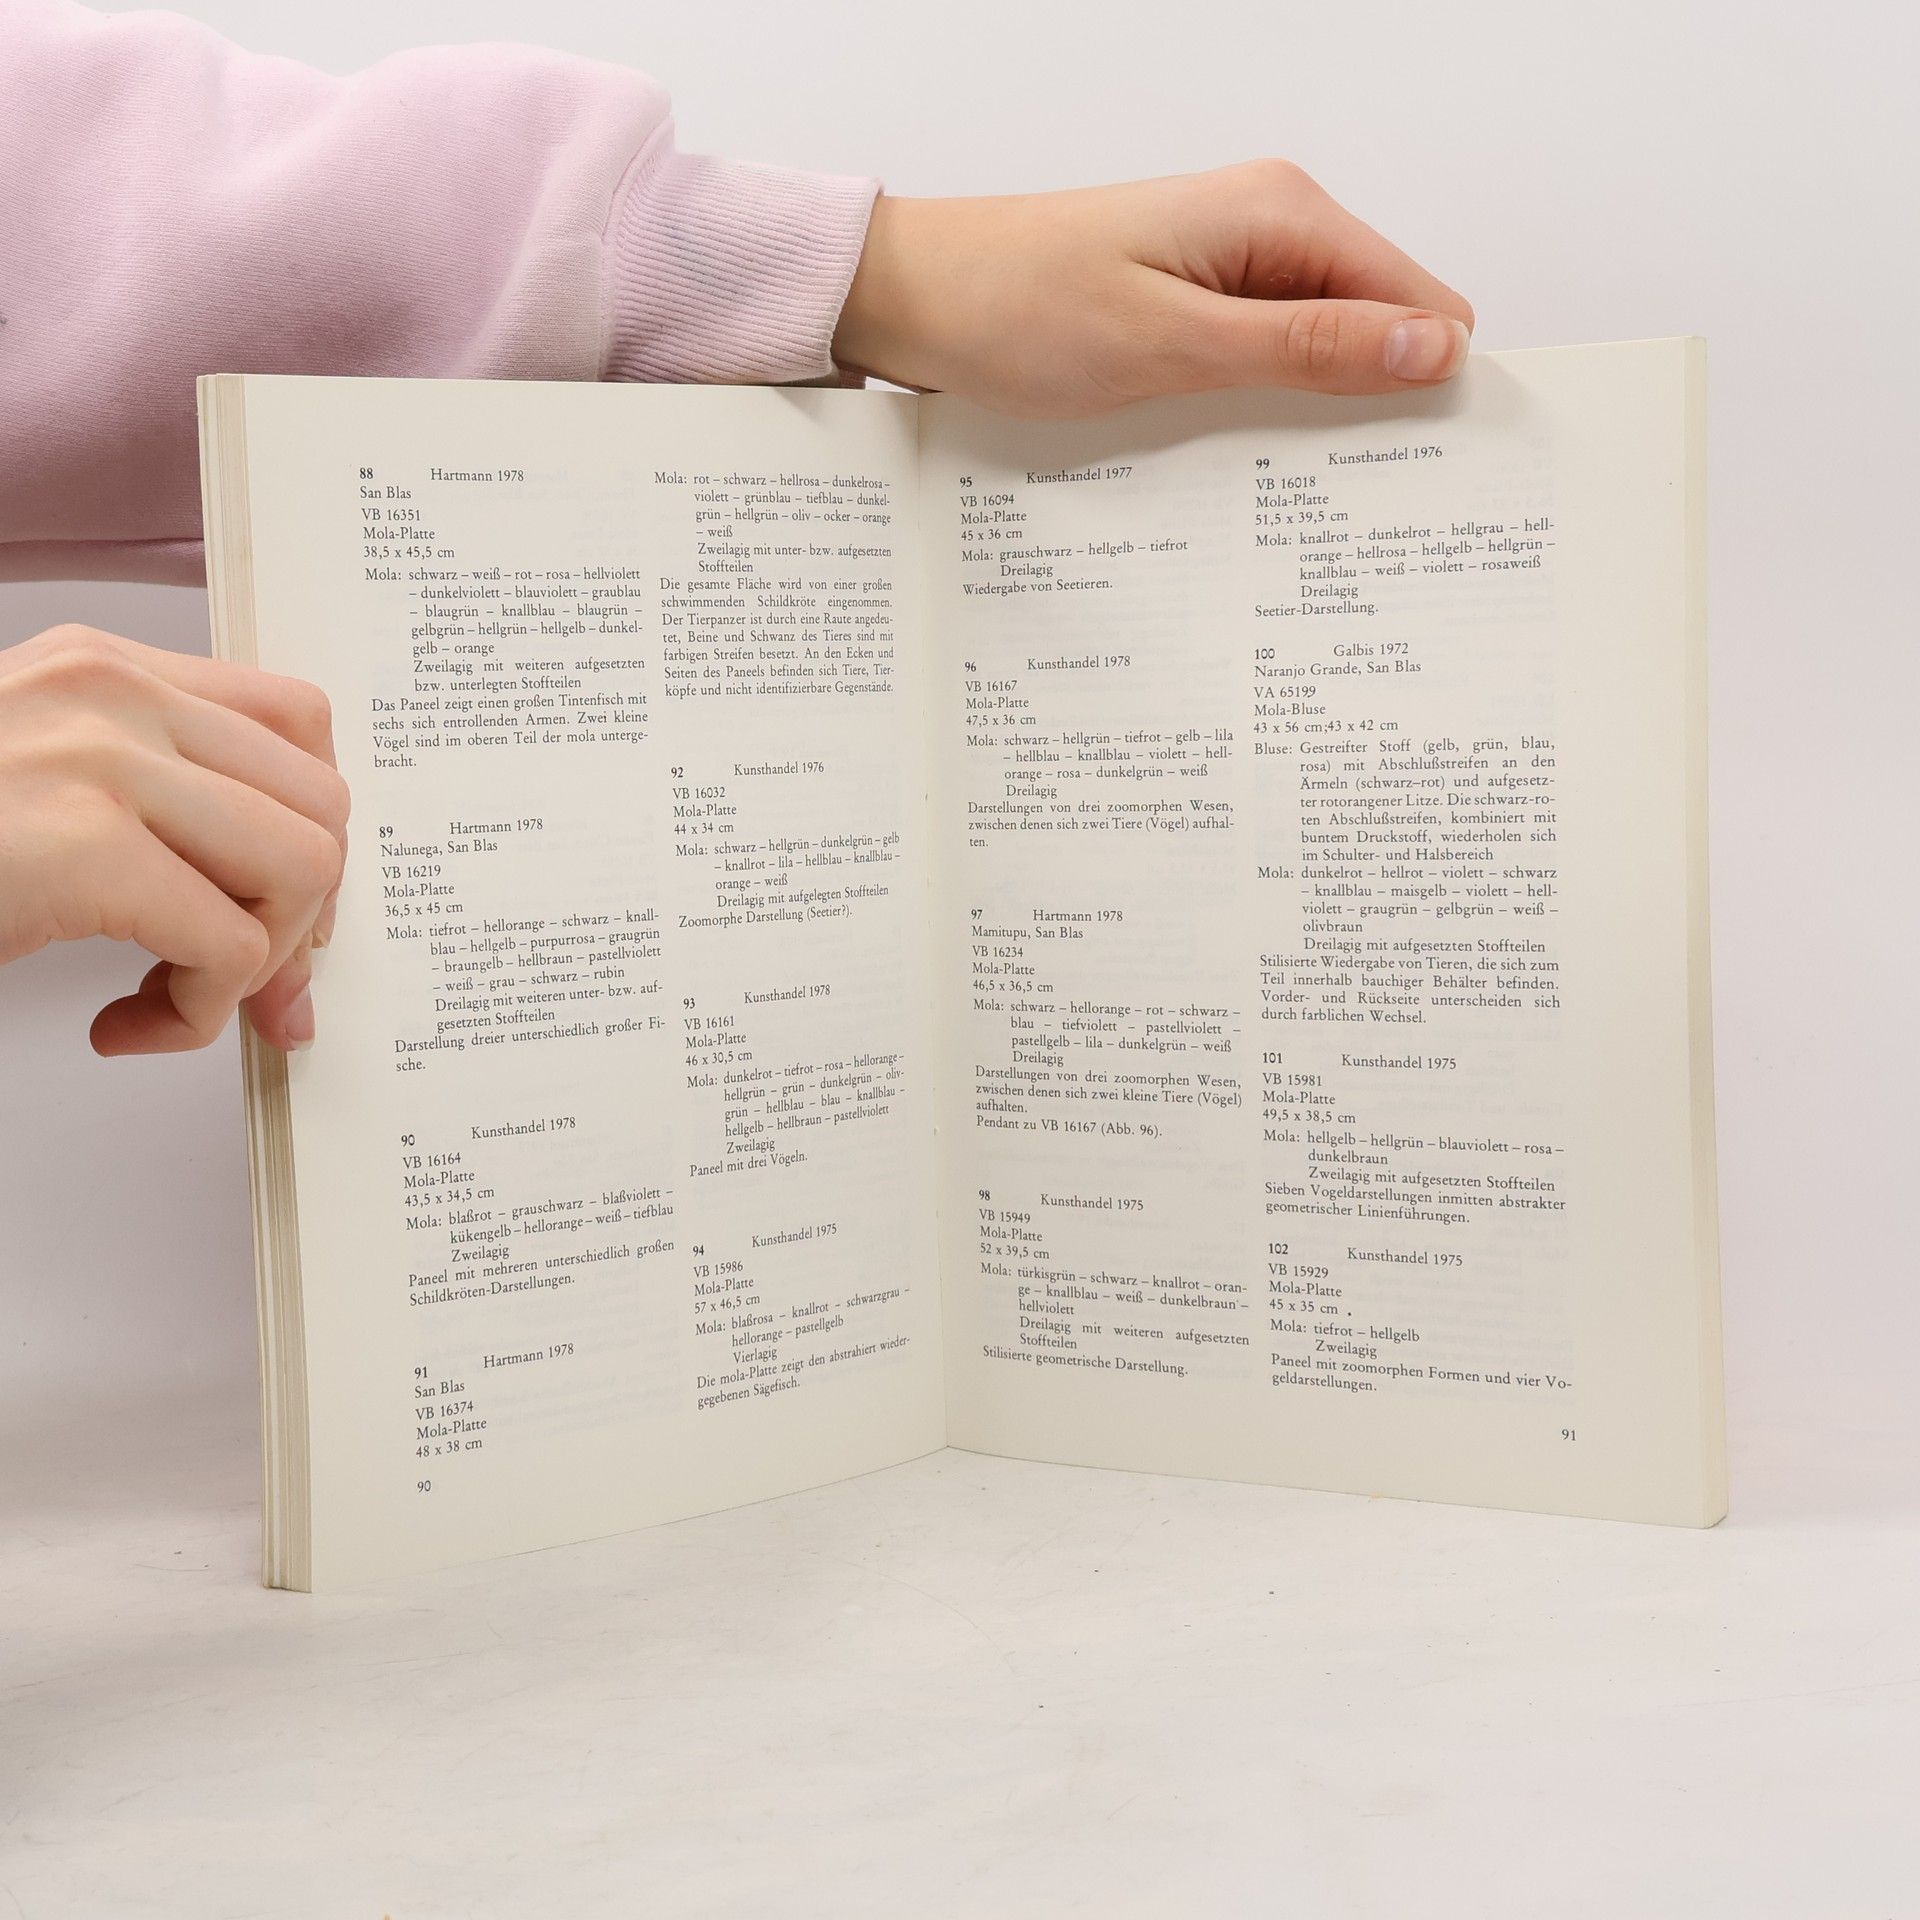 88 Hartmann 1978
San Blas
VB 16351
Mola-Platte
38,5 x 45,5 cm
Mola: schwarz – weiß – rot – rosa – hellviolett
– dunkelviolett – blauviolett – graublau
– blaugrün – knallblau – blaugrün –
gelbgrün – hellgrün – hellgelb – dunkel-
gelb – orange
Zweilagig mit weiteren aufgesetzten
bzw. unterlegten Stoffteilen
Das Paneel zeigt einen großen Tintenfisch mit
sechs sich entrollenden Armen. Zwei kleine
Vögel sind im oberen Teil der mola unterge-
bracht.
89 Hartmann 1978
Nalunega, San Blas
VB 16219
Mola-Platte
36,5 x 45 cm
Mola: tiefrot – hellorange – schwarz – knall-
blau – hellgelb – purpurrosa – graugrün
– braungelb – hellbraun – pastellviolett
– weiß – grau – schwarz – rubin
Dreilagig mit weiteren unter- bzw. auf-
gesetzten Stoffteilen
Darstellung dreier unterschiedlich großer Fi-
sche.
90 Kunsthandel 1978
VB 16164
Mola-Platte
43,5 x 34,5 cm
Mola: blaßrot – grauschwarz – blaßviolett –
kükengelb – hellorange – weiß – tiefblau
Zweilagig
Paneel mit mehreren unterschiedlich großen
Schildkröten-Darstellungen.
91 Hartmann 1978
San Blas
VB 16374
Mola-Platte
48 x 38 cm
90
Mola: rot – schwarz – hellrosa – dunkelrosa –
violett – grünblau – tiefblau – dunkel-
grün – hellgrün – oliv – ocker – orange
– weiß
Zweilagig mit unter- bzw. aufgesetzten
Stoffteilen
Die gesamte Fläche wird von einer großen
schwimmenden Schildkröte eingenommen.
Der Tierpanzer ist durch eine Raute angedeu-
tet, Beine und Schwanz des Tieres sind mit
farbigen Streifen besetzt. An den Ecken und
Seiten des Paneels befinden sich Tiere, Tier-
köpfe und nicht identifizierbare Gegenstände.
92 Kunsthandel 1976
VB 16032
Mola-Platte
44 x 34 cm
Mola: schwarz – hellgrün – dunkelgrün – gelb
– knallrot – lila – hellblau – knallblau –
orange – weiß
Dreilagig mit aufgelegten Stoffteilen
Zoomorphe Darstellung (Seetier?).
93 Kunsthandel 1978
VB 16161
Mola-Platte
46 x 30,5 cm
Mola: dunkelrot – tiefrot – rosa – hellorange –
hellgrün – grün – dunkelgrün – oliv-
grün – hellblau – blau – knallblau –
hellgelb – hellbraun – pastellviolett
Zweilagig
Paneel mit drei Vögeln.
94 Kunsthandel 1975
VB 15986
Mola-Platte
57 x 46,5 cm
Mola: blaßrosa – knallrot – schwarzgrau –
hellorange – pastellgelb
Vierlagig
Die mola-Platte zeigt den abstrahiert wieder-
gegebenen Sägefisch.
95 Kunsthandel 1977
VB 16094
Mola-Platte
45 x 36 cm
Mola: grauschwarz – hellgelb – tiefrot
Dreilagig
Wiedergabe von Seetieren.
96 Kunsthandel 1978
VB 16167
Mola-Platte
47,5 x 36 cm
Mola: schwarz – hellgrün – tiefrot – gelb – lila
– hellblau – knallblau – violett – hell-
orange – rosa – dunkelgrün – weiß
Dreilagig
Darstellungen von drei zoomorphen Wesen,
zwischen denen sich zwei Tiere (Vögel) aufhal-
ten.
97 Hartmann 1978
Mamitupu, San Blas
VB 16234
Mola-Platte
46,5 x 36,5 cm
Mola: schwarz – hellorange – rot – schwarz –
blau – tiefviolett – pastellviolett –
pastellgelb – lila – dunkelgrün – weiß
Dreilagig
Darstellungen von drei zoomorphen Wesen,
zwischen denen sich zwei kleine Tiere (Vögel)
aufhalten.
Pendant zu VB 16167 (Abb. 96).
98 Kunsthandel 1975
VB 15949
Mola-Platte
52 x 39,5 cm
Mola: türkisgrün – schwarz – knallrot – oran-
ge – knallblau – weiß – dunkelbraun –
hellviolett
Dreilagig mit weiteren aufgesetzten
Stoffteilen
Stilisierte geometrische Darstellung.
99 Kunsthandel 1976
VB 16018
Mola-Platte
51,5 x 39,5 cm
Mola: knallrot – dunkelrot – hellgrau – hell-
orange – hellrosa – hellgelb – hellgrün –
knallblau – weiß – violett – rosaweiß
Dreilagig
Seetier-Darstellung.
100 Galbis 1972
Naranjo Grande, San Blas
VA 65199
Mola-Bluse
43 x 56 cm;43 x 42 cm
Bluse: Gestreifter Stoff (gelb, grün, blau,
rosa) mit Abschlußstreifen an den
Ärmeln (schwarz–rot) und aufgesetz-
ter rotorangener Litze. Die schwarz-ro-
ten Abschlußstreifen, kombiniert mit
buntem Druckstoff, wiederholen sich
im Schulter- und Halsbereich
Mola: dunkelrot – hellrot – violett – schwarz
– knallblau – maisgelb – violett – hell-
violett – graugrün – gelbgrün – weiß –
olivbraun
Dreilagig mit aufgesetzten Stoffteilen
Stilisierte Wiedergabe von Tieren, die sich zum
Teil innerhalb bauchiger Behälter befinden.
Vorder- und Rückseite unterscheiden sich
durch farblichen Wechsel.
101 Kunsthandel 1975
VB 15981
Mola-Platte
49,5 x 38,5 cm
Mola: hellgelb – hellgrün – blauviolett – rosa –
dunkelbraun
Zweilagig mit aufgesetzten Stoffteilen
Sieben Vogeldarstellungen inmitten abstrakter
geometrischer Linienführungen.
102 Kunsthandel 1975
VB 15929
Mola-Platte
45 x 35 cm
Mola: tiefrot – hellgelb
Zweilagig
Paneel mit zoomorphen Formen und vier Vo-
geldarstellungen.
91